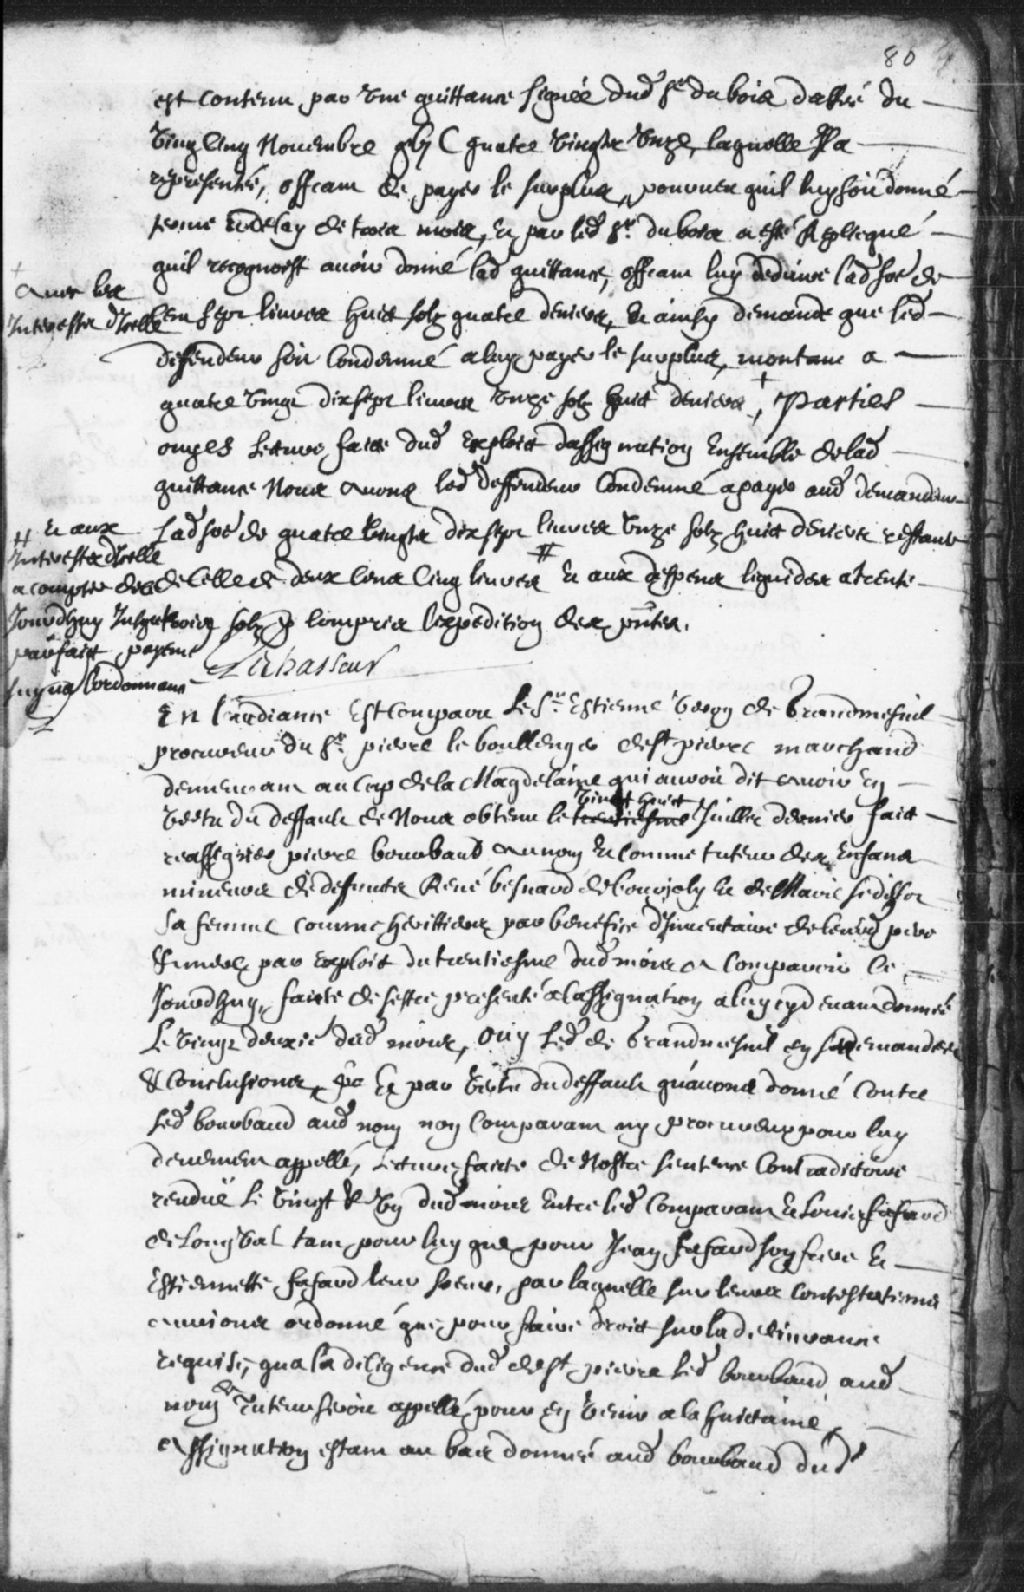 80
est contenu par une quittance signée dud. Sr. dubois dattée du
vingt cinq Novembre gbj C quatre vingts unze, laquelle Il a
representée, offrant de payer le surplus, pourveu quil luy soit donné
terme et delay de trois mois, Et par led. Sr. dubois a esté Repliqué
quil recognoist avoir donné lad. quittance, offrant luy deduire lad. so͠e de
cent sept livres huit solz quatre deniers, Et ainsy demande que led.
deffendeur soit Condemné a luy payer le surplus, montant a
quatre vingt dix sept livres unze solz huit deniers +, Parties
ouyes Lecture faite dud. Exploit dassignation Ensemble de lad.
quittance Nous avons led. deffendeur Condemné a payer aud. demandeur
lad. so͠e de quatre vingts dix sept livres unze solz huit deniers restante
de celle de deux cens cinq livres # Et aux despens liquidez a trente
trois solz compris lexpedition des pntes.
+ avec les
Interests d'Icelle
# Et aux
Interests d'Icelle
a compter de ce
Jourdhuy Jusqu'au
parfait payemt
suyvant lordonnance
Lechasseur
En Laudiance Est Comparu le Sr. Estienne Veron de Grandmesnil
procureur du Sr. pierre le boullenger de St pierre marchand
demeurant au Cap de la Magdelaine qui auroit dit avoir En
Vertu du deffault de Nous obtenu le trentiesme vingt huit Juillet dernier fait
reassigner pierre bourbaud au nom Et Comme tuteur des Enfans
mineurs de deffuncts René besnard de bourjoly Et de Marie sedillot
sa femme comme heritiers par benefice d'Inventaire de leursd. pere
& mere, par exploit du trentiesme dud. mois a Comparoir Ce
Jourdhuy, faute de sestre presenté a lassignation a luy cy devant donnée
Le vingt deuxie dud. mois, Ouy led. de Grandmesnil en ses demandes
& Conclusions, Et par vertu du deffault qu'avons donné Contre
led. bourbaud aud. nom non Comparant ny procureur pour luy
deuement appellé, Lecture faite de Nostre sentence Contradictoire
rendue le vingt & un dud. mois Entre led. Comparant Et Louis fafard
de Longval tant pour luy que pour Jean fafard son frere Et
Estiennette fafard leur soeur, par laquelle sur leurs Contestations
aurions ordonné que pour faire droit sur la delivrance
requise, qua la diligence dud. de St. pierre led. bourbaud aud.
nom de tuteur seroit appellé pour En venir a la huitaine,
Assignation estant au bas donnée aud. bourbaud dud.